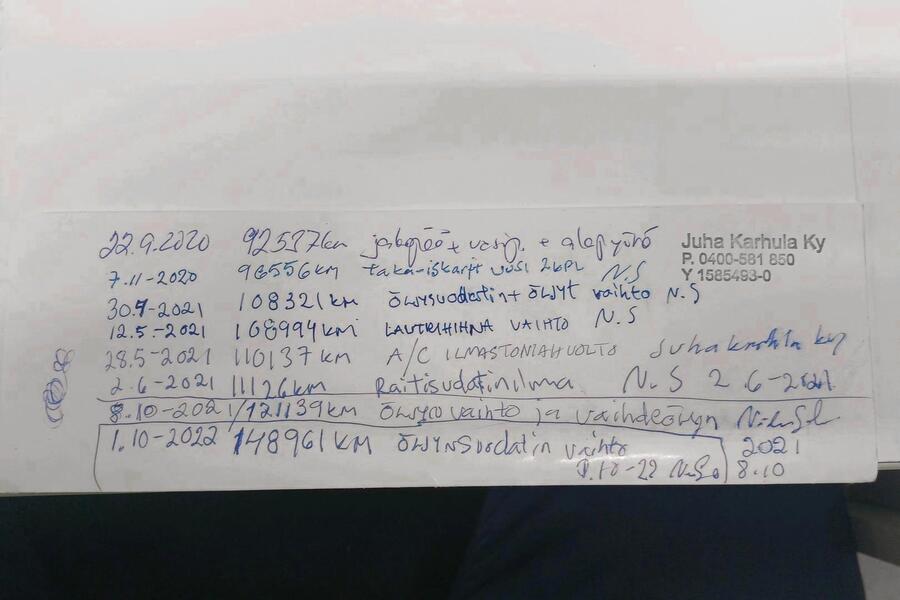 22.9.2020 92537km + alapyörö
Juha Karhula Ky
P. 0400-581 850
Y 1585493-0
7.11-2020 96556km taka-iskarit uusi 2kpl N.S
30.7-2021 108321km öljysuodatin + öljyt vaihto N.S
12.5.-2021 108994km LAUTKIHIHNA VAIHTO N.S
28.5-2021 110137km A/C ILMASTONIAHUOLTO Juha ky
2.6-2021 111126km Raitisudatinilma N.S 2.6-2021
8.10-2021/121139km öljyn vaihto ja vaihdeöljyn
1.10-2022 148961km öljynsuodatin vaihto 2021
1.10-22 8.10